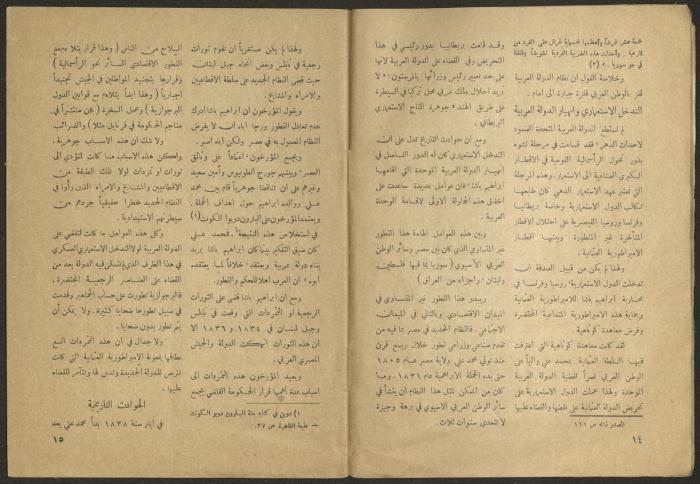 خمسة عشر قرشاً وأعظمها خمسماية قرش على الفرد من
الرعية . وأحدثت هذه الضريبة الفردية تشويشاً وقلقلة
في جو سوريا . » (٢)
وخلاصة القول ان نظام الدولة العربية
قفز بالوطن العربي قفزة جبارة الى امام .
التدخل الاستعماري وانهيار الدولة العربية
لم تستطع الدولة العربية المتحدة الصمود
لاحداث الدهر ؛ فقد قامت في مرحلة نشوء
بذور تحول الرأسمالية القومية في الاقطار
الكبرى الصناعية الى الاستعمار . وهذه المرحلة
التي تعتبر عهد الاستعمار الذهبي كان طابعها
تكالب الدول الاستعمارية وخاصة بريطانيا
وفرنسا وروسيا القيصرية على احتلال الاقطار
المتأخرة غير المتطورة وبينها اقطار
الامبراطورية العثمانية .
ولهذا لم يكن من قبيل الصدفة ان
تدخلت الدول الاستعمارية ؛ روسيا وفرنسا ؛ في
محاربة ابراهيم باشا والامبراطورية العثمانية
وحماية هذه الامبراطورية المتداعية المحتضرة
وفرض معاهدة كوتاهية
لقد كانت معاهدة كوتاهية التي اعترفت
فيها السلطة العثمانية بمحمد علي والياً على
الوطن العربي نصراً لقضية الوحدة العربية
الموحدة ولهذا عملت الدول الاستعمارية على
تحريض الدولة العثمانية على نقضها والقضاء عليها
المصدر ذاته ص ١٦١
١٤
وقد قامت بريطانيا بدور رئيسي في هذا
التحريض وفي القضاء على الدولة العربية لأنها
على حد تعبير رئيس وزرائها بالمرستون « لا
تريد احلال ملك عربي محل تركيا في السيطرة
على طريق الهند » جوهرة التاج الاستعماري
البريطاني .
ومع ان حوادث التاريخ تدل على أن
التدخل الاستعماري كان له الدور الفاصل في
انهيار الدولة العربية الموحدة التي اقامها
ابراهيم باشا ؛ فان عوامل عديدة ساعدت على
اخفاق هذه المحاولة الاولى لاقامة الوحدة
العربية .
وبين هذه العوامل الهامة هذا التطور
غير المتساوي الذي كان بين مصر وسائر الوطن
العربي الآسيوي ( سوريا بما فيها فلسطين
ولبنان ؛ واجزاء من العراق )
ويبدو هذا التطور غير المتساوي في
الميدان الاقتصادي وبالتالي في الميدان
الاجتماعي . فالنظام الجديد في مصر بما فيه من
تقدم صناعي وزراعي تطور خلال ربع قرن
منذ تولي محمد علي ولاية مصر عام ١٨٠٥
حتى بدء الحملة الابراهيمية عام ١٨٣١ . وما
كان من الممكن لمثل هذا النظام ان ينشأ في
سائر الوطن العربي الاسيوي في برهة وجيزة
لا تتعدى سنوات ثلاث .
ولهذا لم يكن مستغرباً ان تقوم ثورات
رجعية في نابلس وبعض انحاء جبل لبنان
حيث قضى النظام الجديد على سلطة الاقطاعيين
والامراء والمشايخ .
ويقول المؤرخون ان ابراهيم باشا ادرك
عدم تعادل التطور ورجا اباه ان لا يفرض
النظام المعمول به في مصر ولكن اباه أصر .
ويجمع المؤرخون ؛ اعتماداً على وثائق
العصر ؛ وبينهم جورج انطونيوس وأمين سعيد
وغيرهم على ان تناقضاً جوهرياً قام بين محمد
علي وولده ابراهيم حول اهداف الحملة .
ويعتمد المؤرخون على البارون دوبوا الكونت (١)
في استخلاص هذه النتيجة ؛ فمحمد علي
كان ضيق التفكير بينما كان ابراهيم باشا يريد
بناء دولة عربية ويعتقد ؛ خلافاً لما يعتقده
أبوه ؛ ان العرب اهلاً للحكم والتطور .
ومع ان ابراهيم باشا قضى على الثورات
الرجعية او التمردات التي وقعت في نابلس
وجبل لبنان في ١٨٣٤ و ١٨٣٦ الا
ان هذه الثورات انهكت الدولة والجيش
المصري العربي .
ويعيد المؤرخون هذه التمردات الى
اسباب عدة أهمها قرار الحكومة القاضي بجمع
١) دوين في كتابه بعثة البارون دوبو الكونت
— طبعة القاهرة ، ص ٢٧ .
السلاح من الناس ( وهذا قرار يتلاءم مع
التطور الاقتصادي السائر نحو الرأسمالية )
وقرارها بتجنيد المواطنين في الجيش تجنيداً
اجبارياً ( وهذا ايضاً يتلاءم مع قوانين الدول
البرجوازية ) وعمل السخرة ( كان منتشراً في
مناجم الحكومة في قرنايل مثلاً ) والضرائب
ولا شك ان هذه الاسباب جوهرية .
ولكن هذه الاسباب ما كانت لتؤدي الى
ثورات او تمردات لولا تلك الطبقة من
الاقطاعيين والمشايخ والامراء الذين رأوا في
النظام الجديد خطراً حقيقياً جردهم من
سيطرتهم الاستبدادية .
وكل هذه العوامل ما كانت لتقضي على
الدولة العربية لولا التدخل الاستعماري العسكري
في هذا الظرف الذي لم تتمكن فيه الدولة بعد من
القضاء على العناصر الرجعية المحتضرة .
فالبرجوازية تطورت على حساب الجماهير وقدمت
في سبيل تطورها ضحايا كثيرة . ولا يمكن أن
يتم تطور بدون ضحايا .
ولا جدال في ان هذه التمردات اتسع
نطاقها بمعونة الامبراطورية العثمانية التي كانت
تتربص للدولة الجديدة وتدس لها وتتآمر للقضاء
عليها .
الحوادث التاريخية
في أيار سنة ١٨٣٨ بدأ محمد علي يعد
١٥